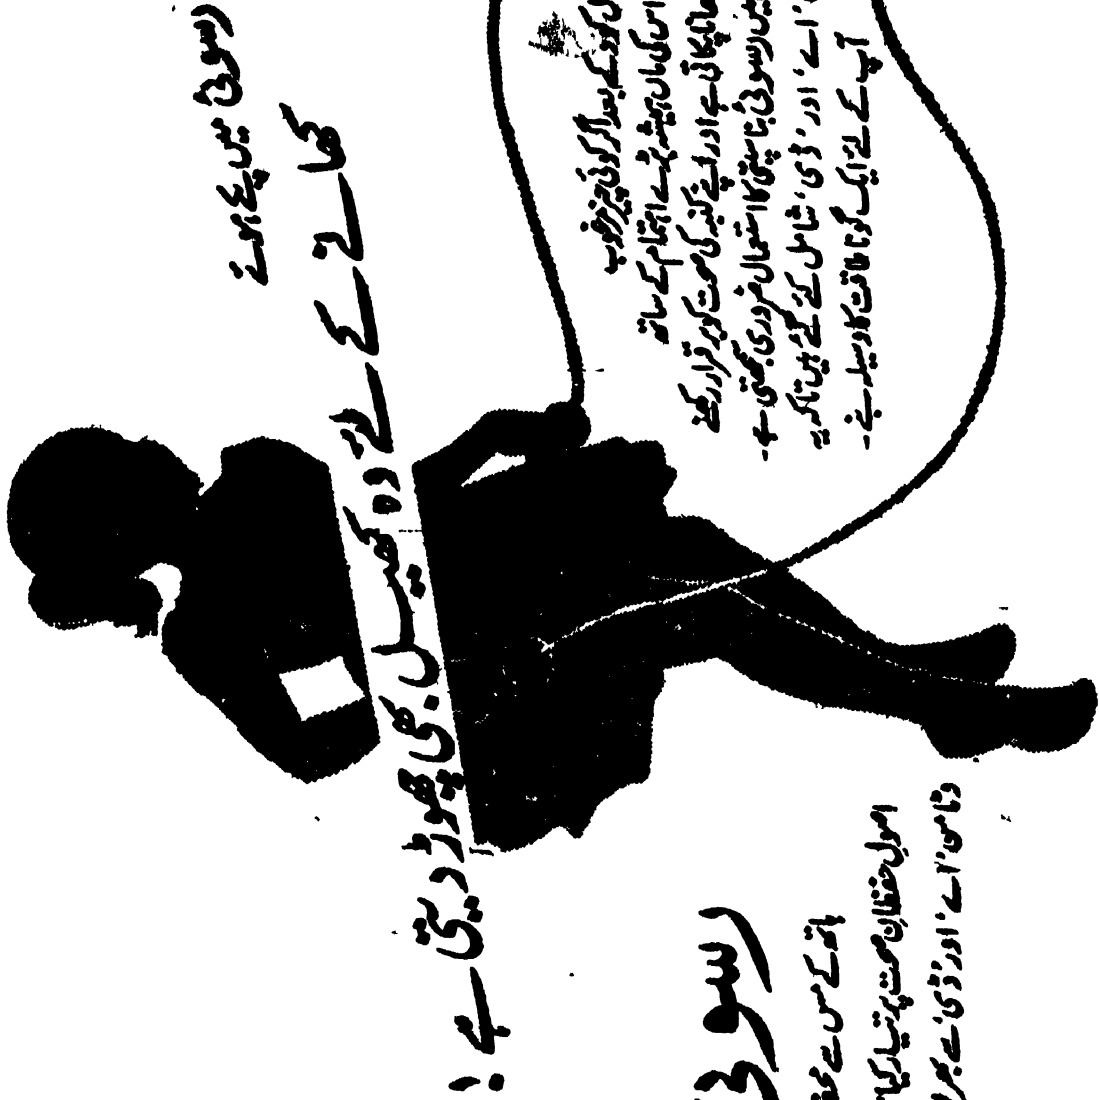 رسوئی میں پکے ہوئے
کھانے کے لئے وہ کھیل بھی چھوڑ دیتی ہے!
کود کے بعد اگر کوئی چیز مرغوب
اس کی ماں ہمیشہ بڑے اہتمام کے ساتھ
کھانا پکاتی ہے اور اپنے کنبہ کی صحت کو برقرار رکھنے
میں رسوئی بناسپتی کا استعمال ضروری سمجھتی ہے۔
'اے' اور 'ڈی' شامل کئے گئے ہیں تاکہ یہ
آپ کے لئے ایک گونا طاقت کا وسیلہ بنے۔
رسوئی
ہاتھ کے مس سے
اصولِ حفظانِ صحت پر تیار کیا
وٹامن 'اے' اور 'ڈی' سے بھرا